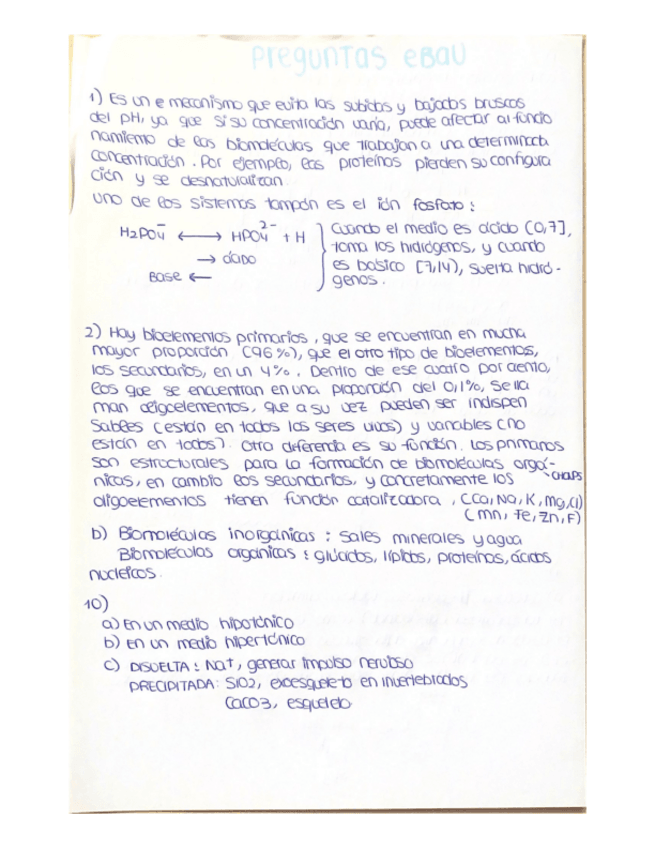 Preguntas EBAU
1) Es un e mecanismo que evita las subidas y bajadas bruscas
del pH, ya que si su concentración varía, puede afectar al funcio
namiento de las biomoléculas que trabajan a una determinada
concentración. Por ejemplo, las proteínas pierden su configura
ción y se desnaturalizan.
Uno de los sistemas tampón es el ión fosfato:
H2PO4⁻ ⟷ HPO4²⁻ + H
→ ácido
Base ←
Cuando el medio es ácido (0,7],
toma los hidrógenos, y cuando
es basico [7,14), suelta hidró-
genos.
2) Hay bioelementos primarios, que se encuentran en mucha
mayor proporción (96%), que el otro tipo de bioelementos,
los secundarios, en un 4%. Dentro de ese cuatro por ciento,
los que se encuentran en una proporción del 0,1%, se lla
man oligoelementos, que a su vez pueden ser indispen
sables (están en todos los seres vivos) y variables (no
están en todos). Otra diferencia es su función. Los primarios
son estructurales para la formación de biomoléculas orgá-
nicas, en cambio los secundarios, y concretamente los
CHONPS
oligoelementos tienen función catalizadora, (Ca, Na, K, Mg, Cl)
(Mn, Fe, Zn, F)
b) Biomoléculas inorgánicas: sales minerales y agua
Biomoléculas orgánicas: glúcidos, lípidos, proteínas, ácidos
nucleicos.
10)
a) En un medio hipotónico
b) En un medio hipertónico
c) DISUELTA: Na+, generar impulso nervioso
PRECIPITADA: SiO2, exoesqueleto en invertebrados
CaCO3, esqueleto